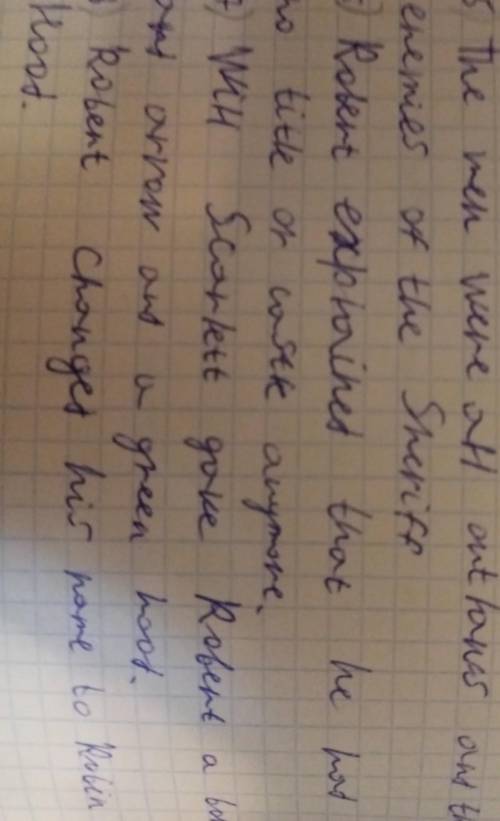 5) The men were all outlaws and
enemies of the Sheriff
Robert explained that he had
no title or castle anymore.
7) Will Scarlett gave Robert a
and arrow and a green hood.
Robert changed his name to Robin
Hood.